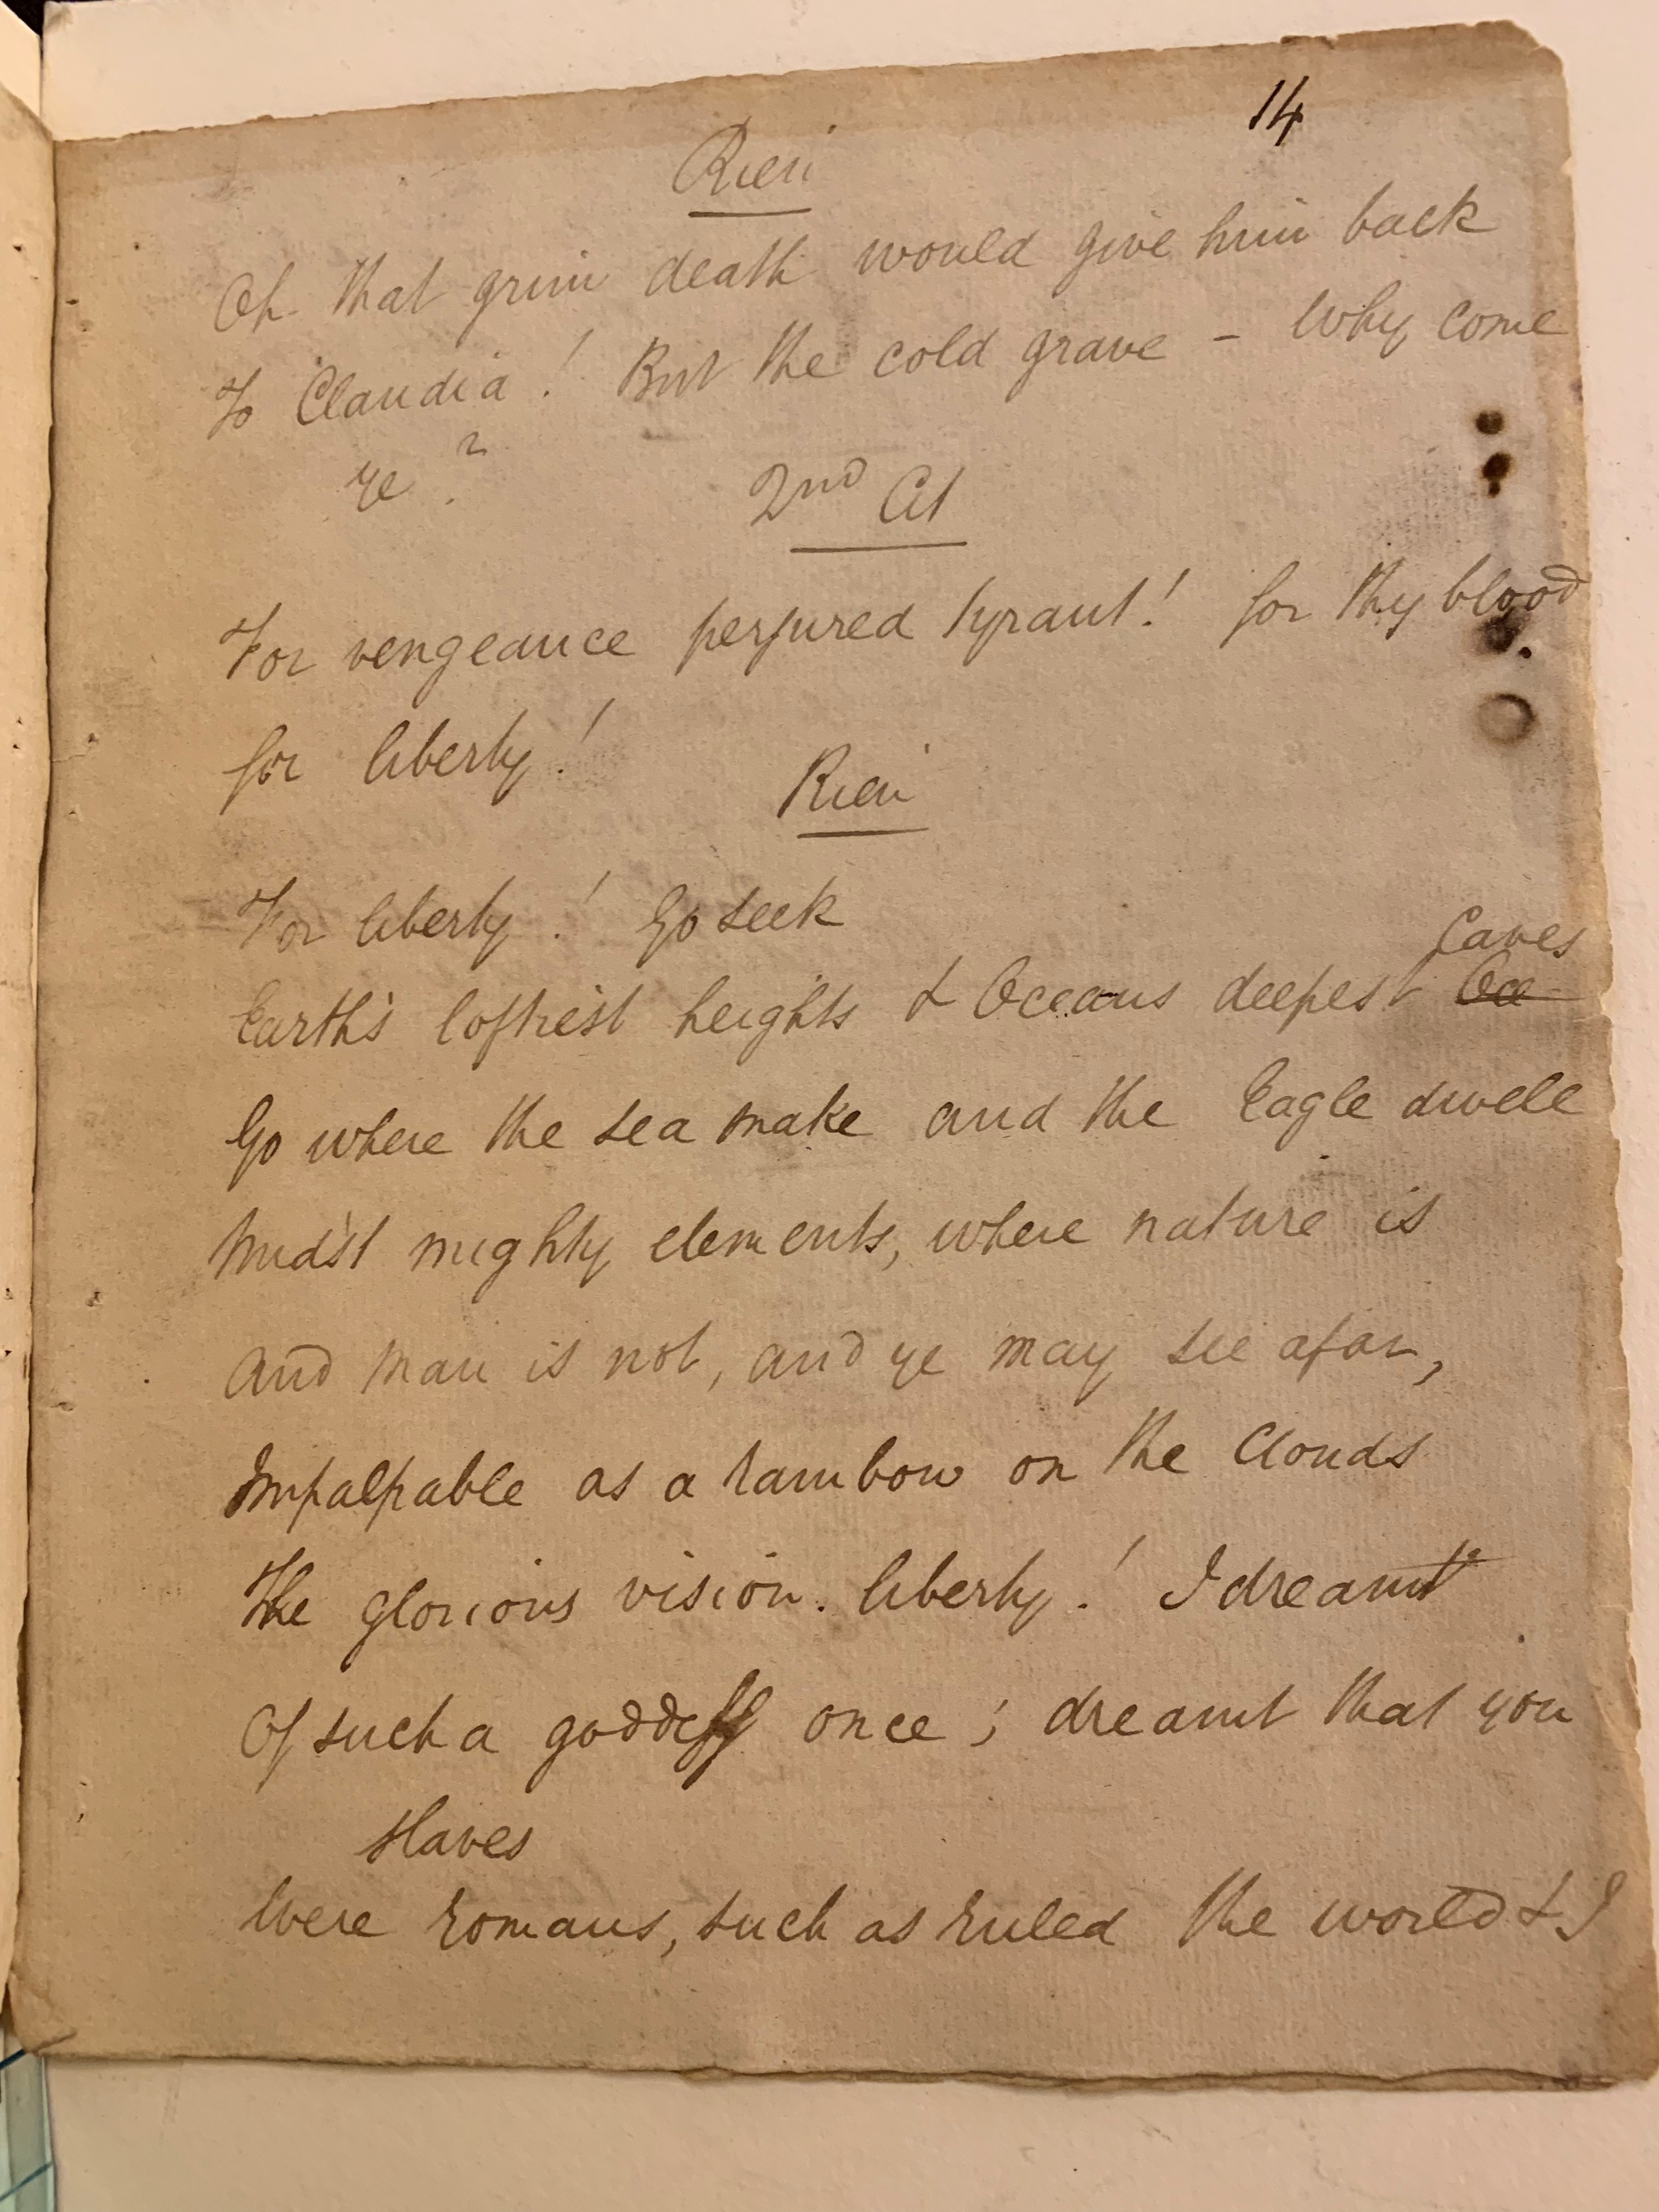 14
Rieni
Oh that grim death would give him back
To Claudia! But the cold grave - Why come
ye?
2nd Cit
For vengeance perjured tyrant! for thy blood
for liberty!
Rieni
For liberty! Go seek
Caves
Earth's loftiest heights & Oceans deepest Oce
Go where the sea snake and the Eagle dwell
Mids't mighty elements, where nature is
And Man is not, and ye may see afar,
Impalpable as a rainbow on the Clouds
The glorious vision. liberty! I dreamt
Of such a goddess once; dreamt that you
slaves
Were Romans, such as ruled the world & I